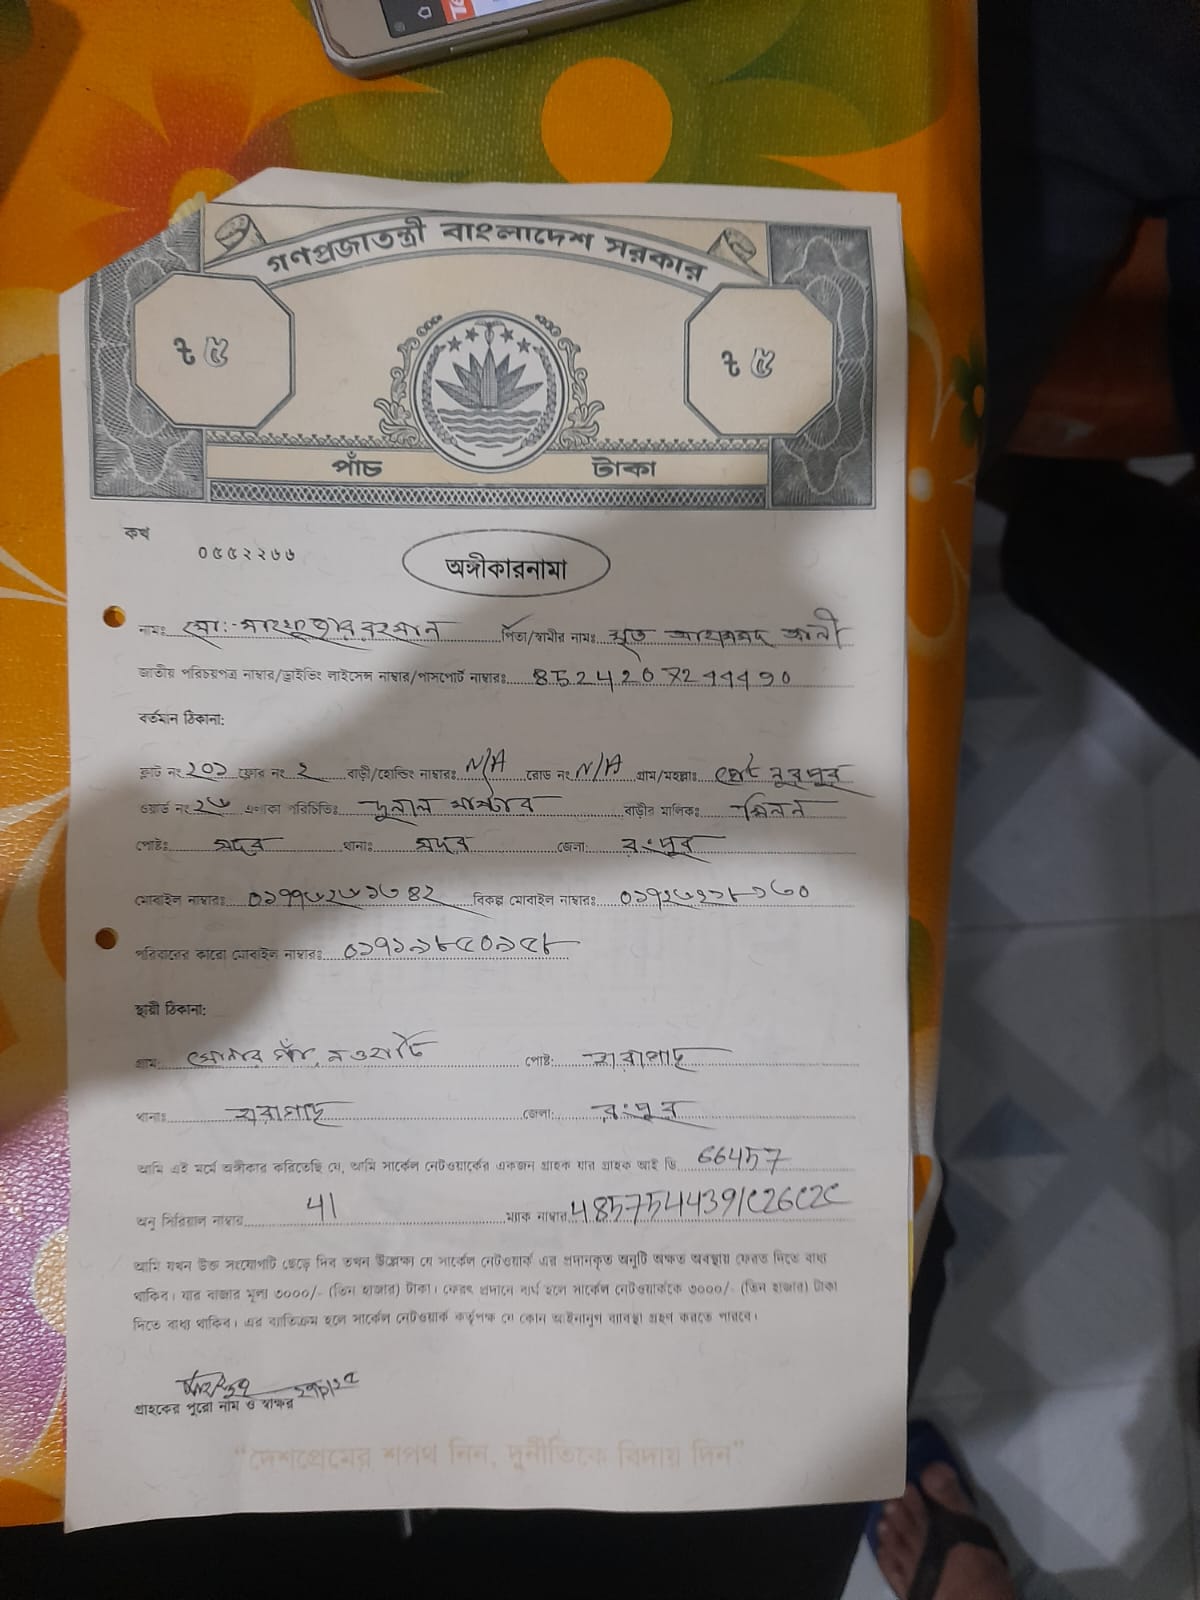 গণপ্রজাতন্ত্রী বাংলাদেশ সরকার
৳ ৫
৳ ৫
পাঁচ টাকা
কখ
০৫৫২২৬৬
অঙ্গীকারনামা
নামঃ মো:- রহমান পিতা/স্বামীর নামঃ মৃত আলী
জাতীয় পরিচয়পত্র নাম্বার/ড্রাইভিং লাইসেন্স নাম্বার/পাসপোর্ট নাম্বারঃ
বর্তমান ঠিকানা:
ফ্লাট নং ২০১ ফ্লোর নং ২ বাড়ী/হোল্ডিং নাম্বারঃ N/A রোড নং N/A গ্রাম/মহল্লাঃ নুরপুর
ওয়ার্ড নং এলাকা পরিচিতিঃ দুলাল মাষ্টার বাড়ীর মালিকঃ মিলন
পোষ্টঃ সদর থানাঃ সদর জেলা: রংপুর
মোবাইল নাম্বারঃ বিকল্প মোবাইল নাম্বারঃ
পরিবারের কারো মোবাইল নাম্বারঃ ০১৭১৯৮৫০৯৫৮
স্থায়ী ঠিকানা:
গ্রাম: পোষ্ট: হারাগাছ
থানাঃ হারাগাছ জেলা: রংপুর
আমি এই মর্মে অঙ্গীকার করিতেছি যে, আমি সার্কেল নেটওয়ার্কের একজন গ্রাহক যার গ্রাহক আই ডি 66457
অনু সিরিয়াল নাম্বার 41 ম্যাক নাম্বার
আমি যখন উক্ত সংযোগটি ছেড়ে দিব তখন উল্লেক্ষা যে সার্কেল নেটওয়ার্ক এর প্রদানকৃত অনুটি অক্ষত অবস্থায় ফেরত দিতে বাধ্য
থাকিব। যার বাজার মূল্য ৩০০০/- (তিন হাজার) টাকা। ফেরৎ প্রদানে ব্যর্থ হলে সার্কেল নেটওয়ার্ককে ৩০০০/- (তিন হাজার) টাকা
দিতে বাধ্য থাকিব। এর ব্যতিক্রম হলে সার্কেল নেটওয়ার্ক কর্তৃপক্ষ যে কোন আইনানুগ ব্যবস্থা গ্রহণ করতে পারবে।
গ্রাহকের পুরো নাম ও স্বাক্ষর
“দেশপ্রেমের শপথ নিন, দুর্নীতিকে বিদায় দিন”